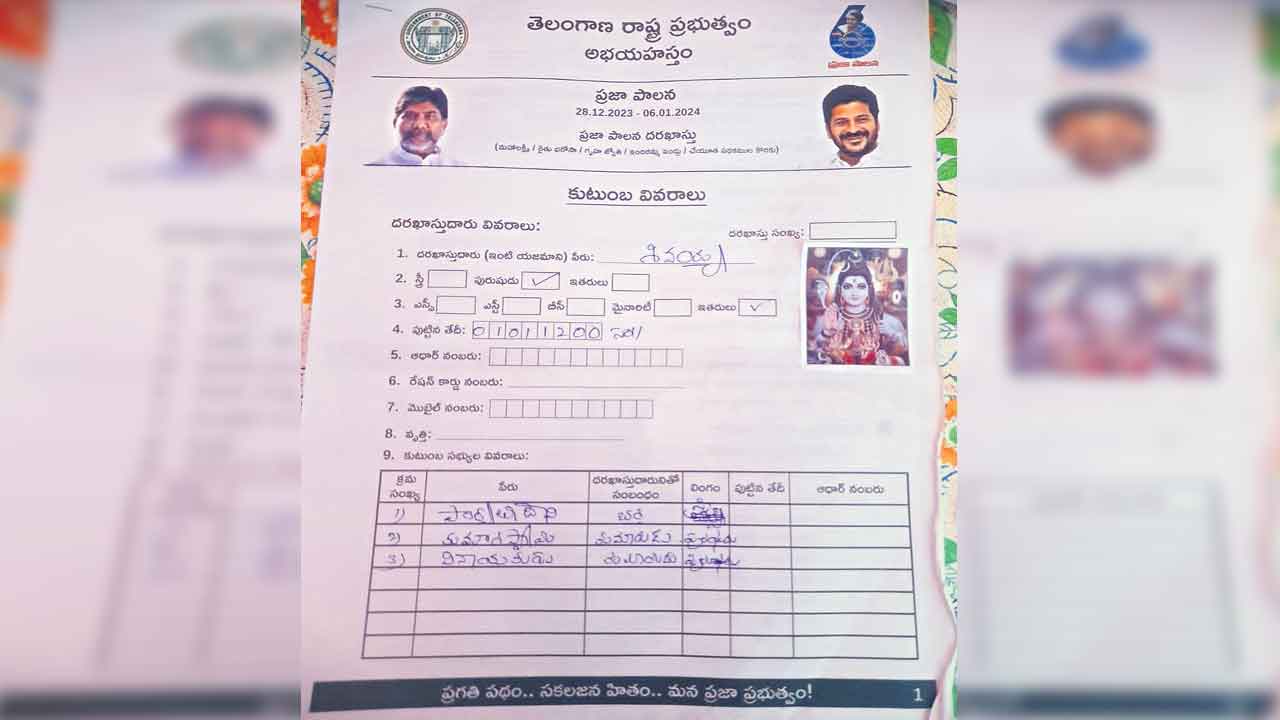 తెలంగాణ రాష్ట్ర ప్రభుత్వం
అభయహస్తం
ప్రజా పాలన
28.12.2023 - 06.01.2024
ప్రజా పాలన దరఖాస్తు
(మహాలక్ష్మి / రైతు భరోసా / గృహ జ్యోతి / ఇందిరమ్మ ఇండ్లు / చేయూత పథకముల కొరకు)
కుటుంబ వివరాలు
దరఖాస్తుదారు వివరాలు:
దరఖాస్తు సంఖ్య:
1. దరఖాస్తుదారు (ఇంటి యజమాని) పేరు: శివయ్య
2. స్త్రీ పురుషుడు ✓ ఇతరులు
3. ఎస్సీ ఎస్టీ బీసీ మైనారిటీ ఇతరులు ✓
4. పుట్టిన తేదీ: 01011200
5. ఆధార్ నంబరు:
6. రేషన్ కార్డు నంబరు:
7. మొబైల్ నంబరు:
8. వృత్తి:
9. కుటుంబ సభ్యుల వివరాలు:
క్రమ సంఖ్య పేరు దరఖాస్తుదారునితో సంబంధం లింగం పుట్టిన తేదీ ఆధార్ నంబరు
1) పార్వతీదేవి భార్య స్త్రీ
2) కుమారస్వామి కుమారుడు పురుషుడు
3) వినాయకుడు కుమారుడు పురుషుడు
ప్రగతి పథం.. సకలజన హితం.. మన ప్రజా ప్రభుత్వం! 1